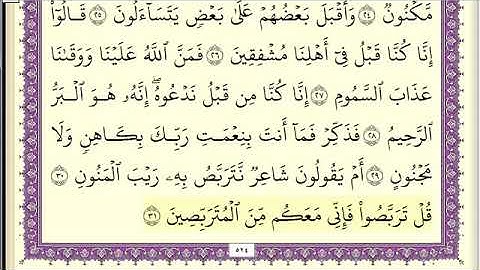 مَّكْنُونٌ ٢٤ وَأَقْبَلَ بَعْضُهُمْ عَلَىٰ بَعْضٍ يَتَسَآءَلُونَ ٢٥ قَالُوٓا۟
إِنَّا كُنَّا قَبْلُ فِىٓ أَهْلِنَا مُشْفِقِينَ ٢٦ فَمَنَّ ٱللَّهُ عَلَيْنَا وَوَقَىٰنَا
عَذَابَ ٱلسَّمُومِ ٢٧ إِنَّا كُنَّا مِن قَبْلُ نَدْعُوهُ ۖ إِنَّهُۥ هُوَ ٱلْبَرُّ
ٱلرَّحِيمُ ٢٨ فَذَكِّرْ فَمَآ أَنتَ بِنِعْمَتِ رَبِّكَ بِكَاهِنٍ وَلَا
مَجْنُونٍ ٢٩ أَمْ يَقُولُونَ شَاعِرٌ نَّتَرَبَّصُ بِهِۦ رَيْبَ ٱلْمَنُونِ ٣٠
قُلْ تَرَبَّصُوا۟ فَإِنِّى مَعَكُم مِّنَ ٱلْمُتَرَبِّصِينَ ٣١
٥٢٤